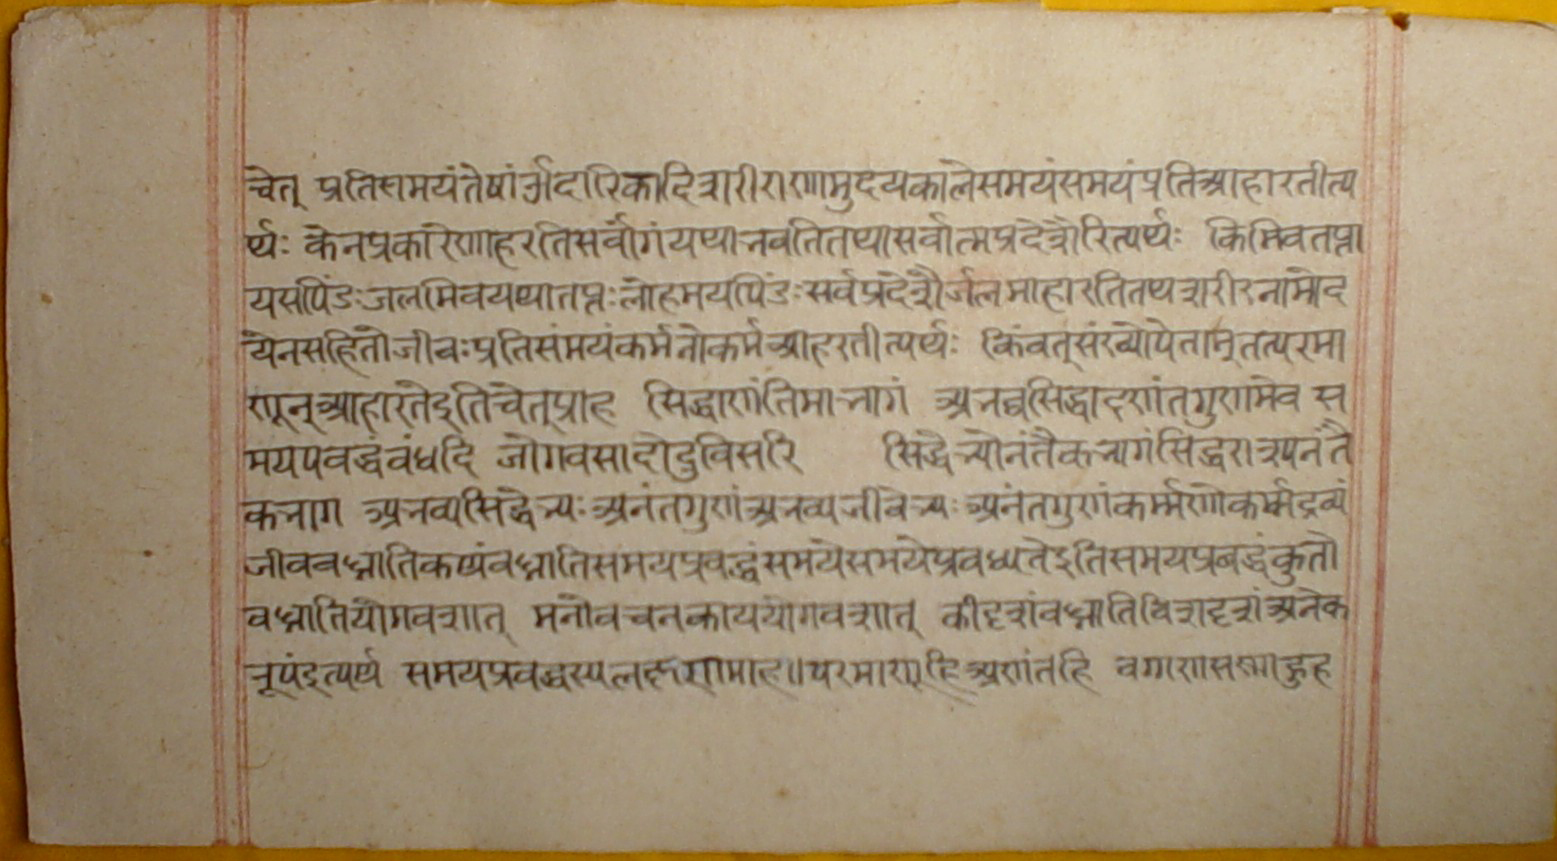 चेत् प्रतिसमयंतेषांऔदारिकादिशरीराणामुदयकालेसमयंसमयंप्रतिआहारतीत्य
र्थः केनप्रकारेणाहरतिसर्वांगंयथाभवतितथासर्वात्मप्रदेशैरित्यर्थः किमिवतप्ता
यसपिंडःजलमिवयथातप्तःलोहमयपिंडःसर्वप्रदेशैर्जलमाहारतितथशरीरनामोद
येनसहितोजीवःप्रतिसंमयंकर्मनोकर्मआहरतीत्यर्थः किंवत्संख्योपेतान्तत्परमा
णून्आहारतेइतिचेत्प्राह सिद्धाणंतिमाभागं अभव्वसिद्धादणंतगुणमेव स
मयपवद्धंवंधदि जोगवसादोदुविसरि सिद्धेभ्योनंतैकभागंसिद्धराश्यनंतै
कभाग अभव्यसिद्धेभ्यःअनंतगुणंअभव्यजीवेभ्यःअनंतगुणंकर्म्मणोकर्म्मद्रव्यं
जीववध्नातिकथंवध्नातिसमयप्रवद्धंसमयेसमयेप्रवध्यतेइतिसमयप्रबद्धंकुतो
वध्नातियोगवशात् मनोवचनकाययोगवशात् कीदृशंवध्नातिविशदृशंअनेक
रूपंइत्यर्थ समयप्रवद्धस्यलक्षणमाह॥परमाणूहिअणंतहि वगाणासणाहुह